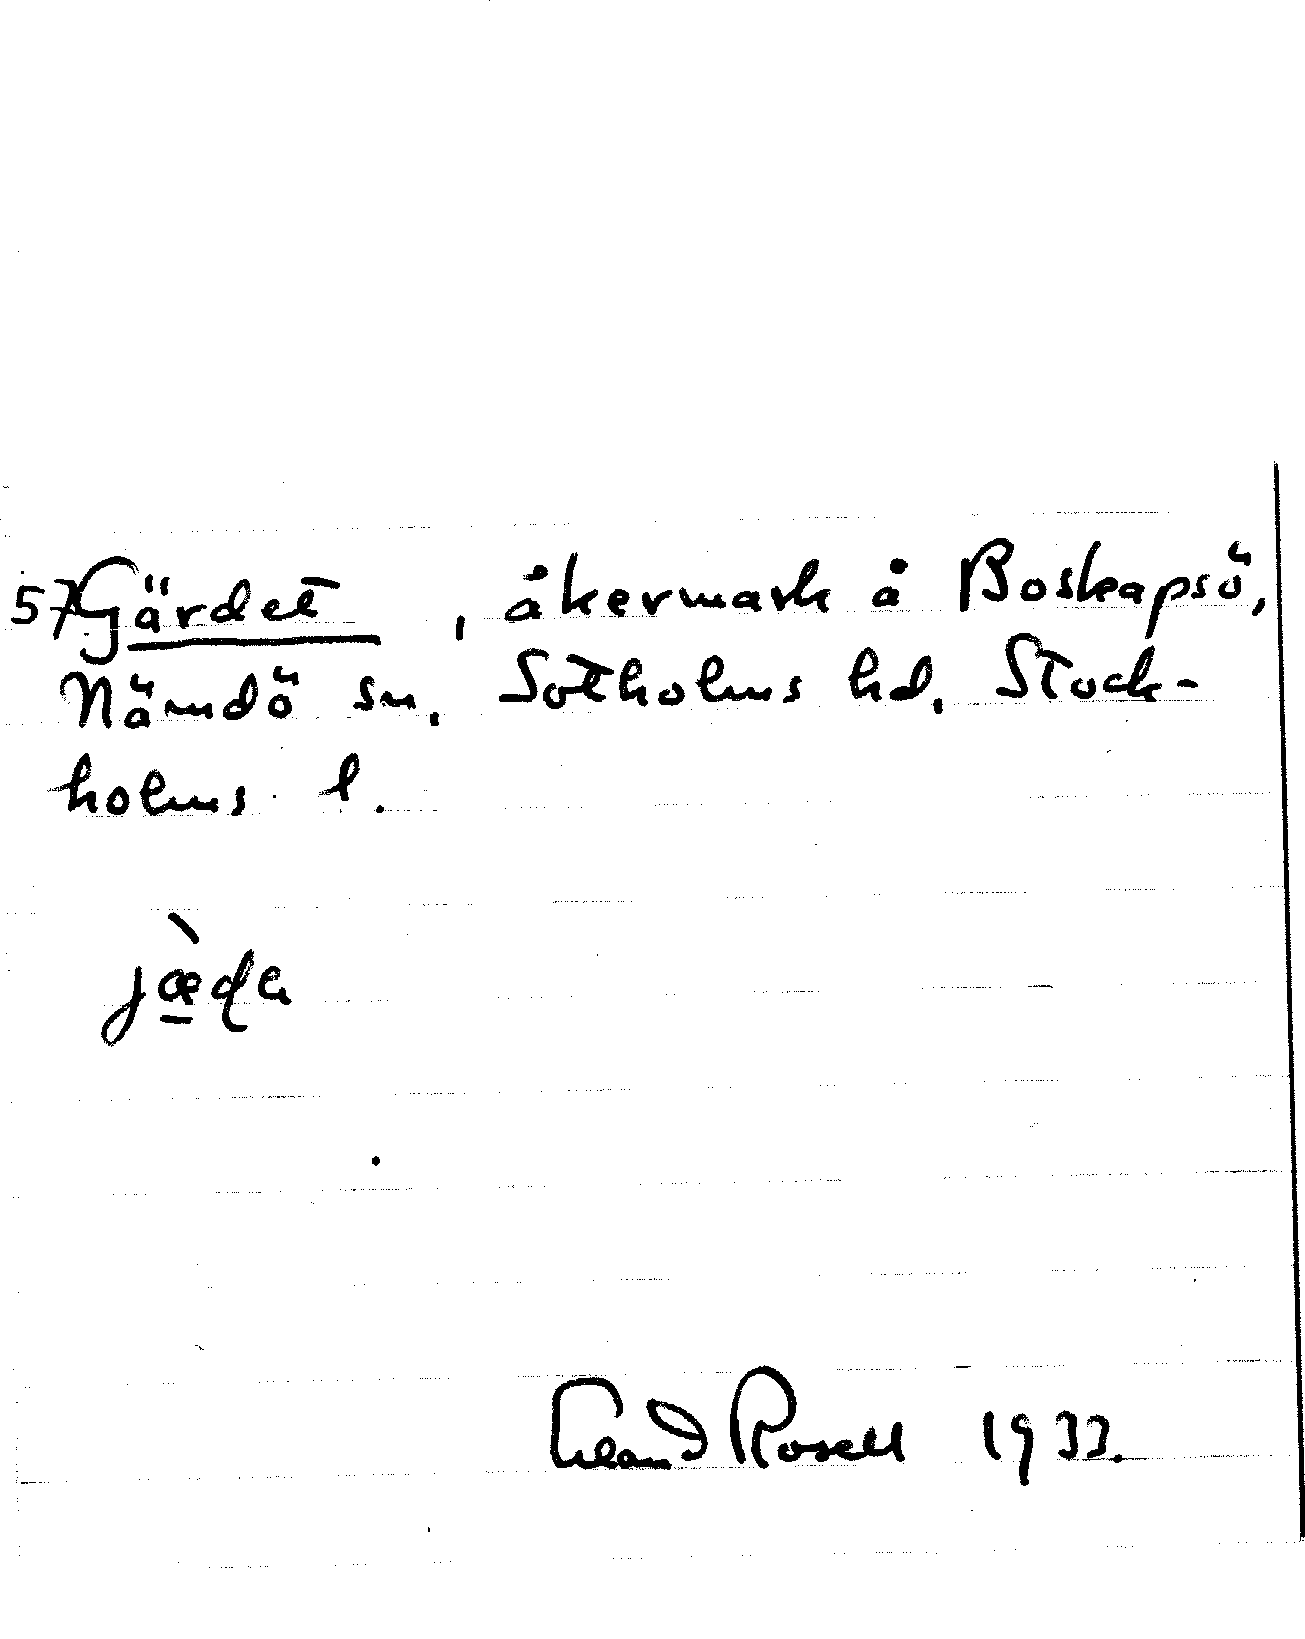 57 Gärdet, åkermark å Boskapsö,
Nämdö sn. Sotholms hd. Stock-
holms l.
jæ̠̀ɖa
Rosell 1933.